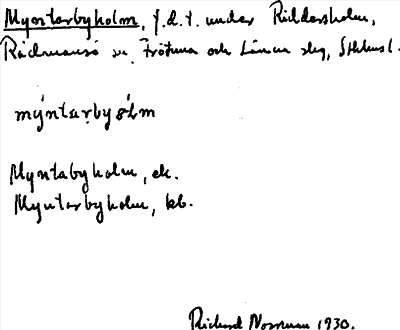 Myntarbyholm, f.d. t. under Riddersholm,
Rådmansö sn, Frötuna och Länna slg, Sthlms l.
mýntarbyhòlm
Myntabyholm, ek.
Myntarbyholm, kb.
Rickard Norrman 1930.